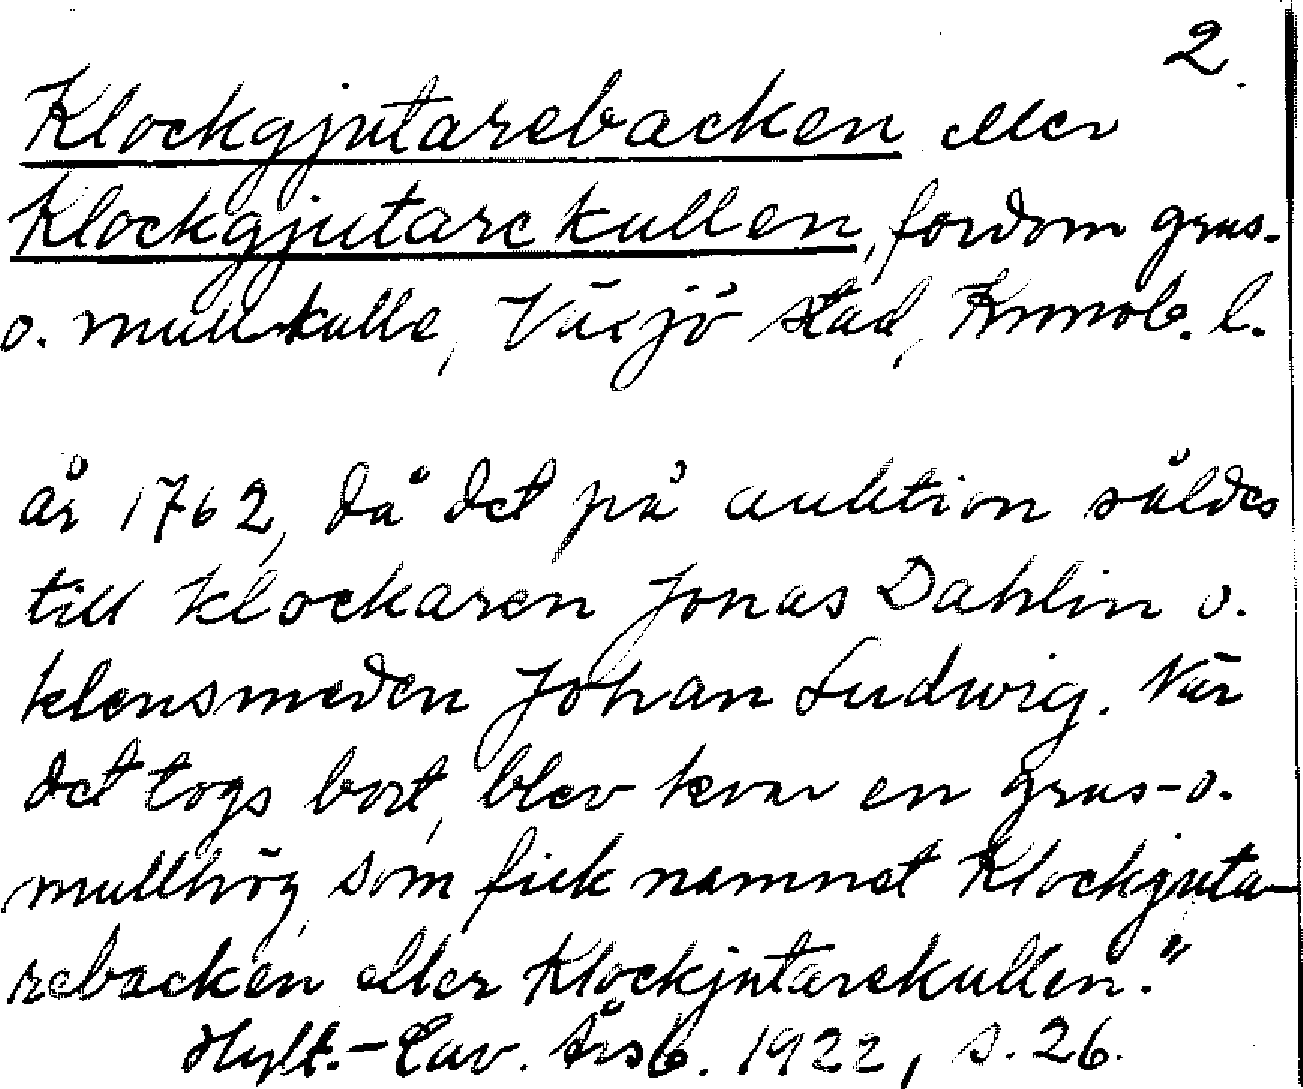 2.
Klockgjutarebacken eller
Klockgjutarekullen, fordom grus-
o. mullkulle, Växjö stad, Kronob. l.
år 1762, då det på auktion såldes
till klockaren Jonas Dahlin o.
klensmeden Johan Ludwig. När
det togs bort, blev kvar en grus- o.
mullhög, som fick namnet Klockgjuta-
rebacken eller Klockjutarekullen."
Hylt.-Cav. Årsb. 1922, s. 26.